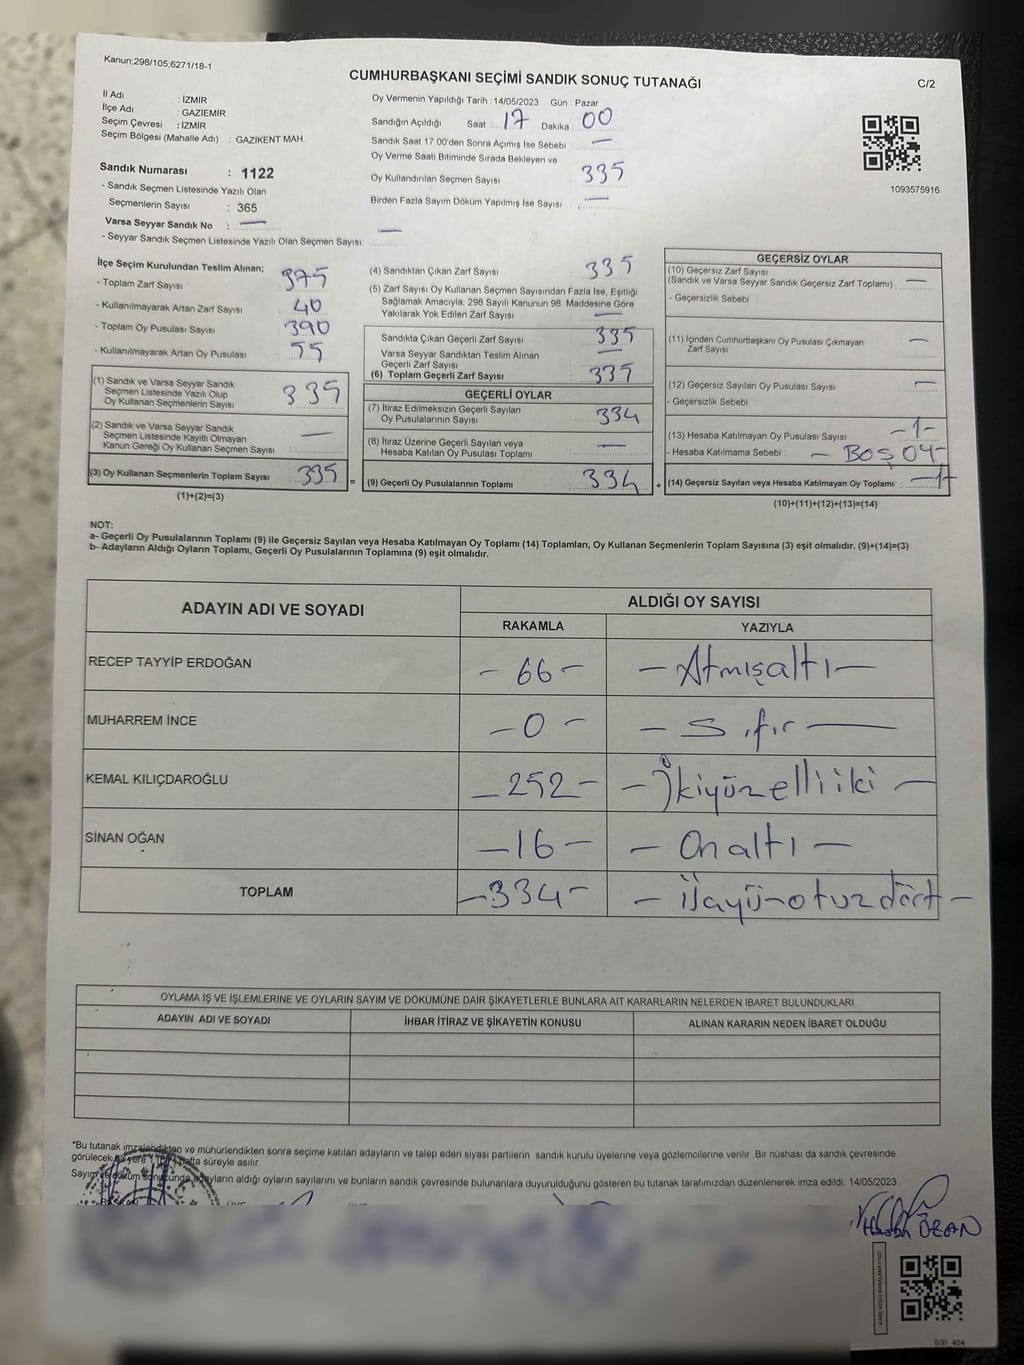 Kanun;298/105,6271/18-1
CUMHURBAŞKANI SEÇİMİ SANDIK SONUÇ TUTANAĞI
C/2
İl Adı : İZMİR
İlçe Adı : GAZİEMİR
Seçim Çevresi : İZMİR
Seçim Bölgesi (Mahalle Adı) : GAZİKENT MAH.
Sandık Numarası : 1122
- Sandık Seçmen Listesinde Yazılı Olan
Seçmenlerin Sayısı : 365
Varsa Seyyar Sandık No : —
- Seyyar Sandık Seçmen Listesinde Yazılı Olan Seçmen Sayısı: —
Oy Vermenin Yapıldığı Tarih : 14/05/2023 Gün : Pazar
Sandığın Açıldığı Saat : 17 Dakika : 00
Sandık Saat 17:00'den Sonra Açımış İse Sebebi : —
Oy Verme Saati Bitiminde Sırada Bekleyen ve
Oy Kullandırılan Seçmen Sayısı : 335
Birden Fazla Sayım Döküm Yapılmış İse Sayısı : —
1093575916
İlçe Seçim Kurulundan Teslim Alınan;
- Toplam Zarf Sayısı : 375
- Kullanılmayarak Artan Zarf Sayısı : 40
- Toplam Oy Pusulası Sayısı : 390
- Kullanılmayarak Artan Oy Pusulası : 55
(1) Sandık ve Varsa Seyyar Sandık
Seçmen Listesinde Yazılı Olup
Oy Kullanan Seçmenlerin Sayısı 335
(2) Sandık ve Varsa Seyyar Sandık
Seçmen Listesinde Kayıtlı Olmayan
Kanun Gereği Oy Kullanan Seçmen Sayısı : —
(3) Oy Kullanan Seçmenlerin Toplam Sayısı : 335 =
(1)+(2)=(3)
(4) Sandıktan Çıkan Zarf Sayısı : 335
(5) Zarf Sayısı Oy Kullanan Seçmen Sayısından Fazla İse, Eşitliği
Sağlamak Amacıyla, 298 Sayılı Kanunun 98. Maddesine Göre
Yakılarak Yok Edilen Zarf Sayısı : —
Sandıkta Çıkan Geçerli Zarf Sayısı 335
Varsa Seyyar Sandıktan Teslim Alınan
Geçerli Zarf Sayısı —
(6) Toplam Geçerli Zarf Sayısı 335
GEÇERLİ OYLAR
(7) İtiraz Edilmeksizin Geçerli Sayılan
Oy Pusulalarının Sayısı : 334
(8) İtiraz Üzerine Geçerli Sayılan veya
Hesaba Katılan Oy Pusulası Toplamı : —
(9) Geçerli Oy Pusulalarının Toplamı : 334 +
GEÇERSİZ OYLAR
(10) Geçersiz Zarf Sayısı
(Sandık ve Varsa Seyyar Sandık Geçersiz Zarf Toplamı) : —
- Geçersizlik Sebebi :
(11) İçinden Cumhurbaşkanı Oy Pusulası Çıkmayan
Zarf Sayısı : —
(12) Geçersiz Sayılan Oy Pusulası Sayısı : —
- Geçersizlik Sebebi
(13) Hesaba Katılmayan Oy Pusulası Sayısı : -1-
- Hesaba Katılmama Sebebi : - BOŞ OY-
(14) Geçersiz Sayılan veya Hesaba Katılmayan Oy Toplamı : -1-
(10)+(11)+(12)+(13)=(14)
NOT:
a- Geçerli Oy Pusulalarının Toplamı (9) ile Geçersiz Sayılan veya Hesaba Katılmayan Oy Toplamı (14) Toplamları, Oy Kullanan Seçmenlerin Toplam Sayısına (3) eşit olmalıdır. (9)+(14)=(3)
b- Adayların Aldığı Oyların Toplamı, Geçerli Oy Pusulalarının Toplamına (9) eşit olmalıdır.
ADAYIN ADI VE SOYADI ALDIĞI OY SAYISI
RAKAMLA YAZIYLA
RECEP TAYYİP ERDOĞAN -66- - Atmışaltı -
MUHARREM İNCE -0- - Sıfır -
KEMAL KILIÇDAROĞLU -252- - İkiyüzelliiki -
SİNAN OĞAN -16- - Onaltı -
TOPLAM -334-
OYLAMA İŞ VE İŞLEMLERİNE VE OYLARIN SAYIM VE DÖKÜMÜNE DAİR ŞİKAYETLERLE BUNLARA AİT KARARLARIN NELERDEN İBARET BULUNDUKLARI
ADAYIN ADI VE SOYADI İHBAR İTİRAZ VE ŞİKAYETİN KONUSU ALINAN KARARIN NEDEN İBARET OLDUĞU
*Bu tutanak imzalandıktan ve mühürlendikten sonra seçime katılan adayların ve talep eden siyasi partilerin sandık kurulu üyelerine veya gözlemcilerine verilir. Bir nüshası da sandık çevresinde
görülecek bir yere 1 hafta süreyle asılır.
Sayım ve döküm sonucunda adayların aldığı oyların sayılarını ve bunların sandık çevresinde bulunanlara duyurulduğunu gösteren bu tutanak tarafımızdan düzenlenerek imza edildi. 14/05/2023
ÖZCAN
SSİ 404